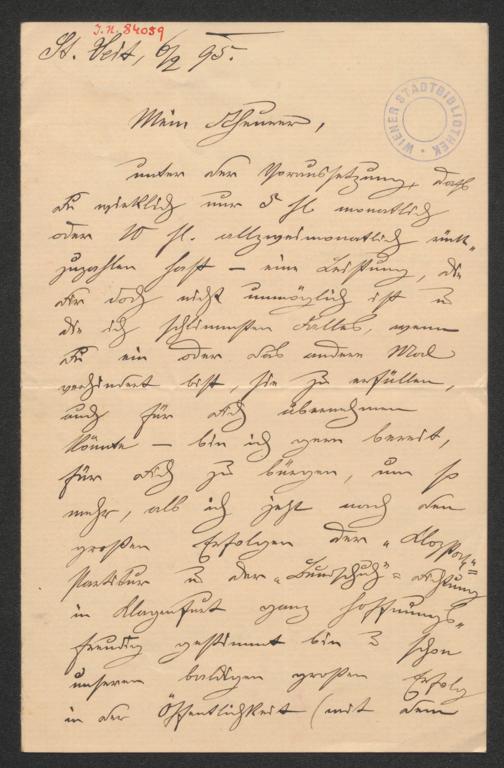 J.N. 84059
St. Veit, 6/2 95.
WIENER STADTBIBLIOTHEK
Mein Theurer,
unter der Voraussetzung, daß
Du wirklich nur 5 fl. monatlich
oder 10 fl. allzweimonatlich rück-
zuzahlen hast – eine Leistung, die
Dir doch nicht unmöglich ist u
die ich schlimmsten Falles, wenn
Du ein oder das andere Mal
verhindert bist, sie zu erfüllen,
auch für Dich übernehmen
könnte – bin ich gern bereit,
für Dich zu bürgen, um so
mehr, als ich jetzt nach den
großen Erfolgen der „
Partitur u der „Bundschuh"-Dichtung
in Klagenfurt ganz hoffnungs-
freudig gestimmt bin u schon
unseren baldigen großen Erfolg
in der Öffentlichkeit (mit dem